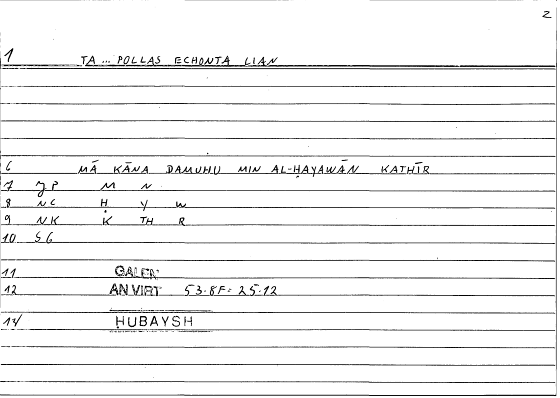 2
1 TA ... POLLAS ECHONTA LIAN
6 MĀ KĀNA DAMUHU MIN AL-ḤAYAWĀN KATHĪR
7 M N
8 NC Ḥ Y W
9 NK K TH R
10 SG
11 GALEN
12 AN VIRT 53·8F·25·12
13/ HUBAYSH